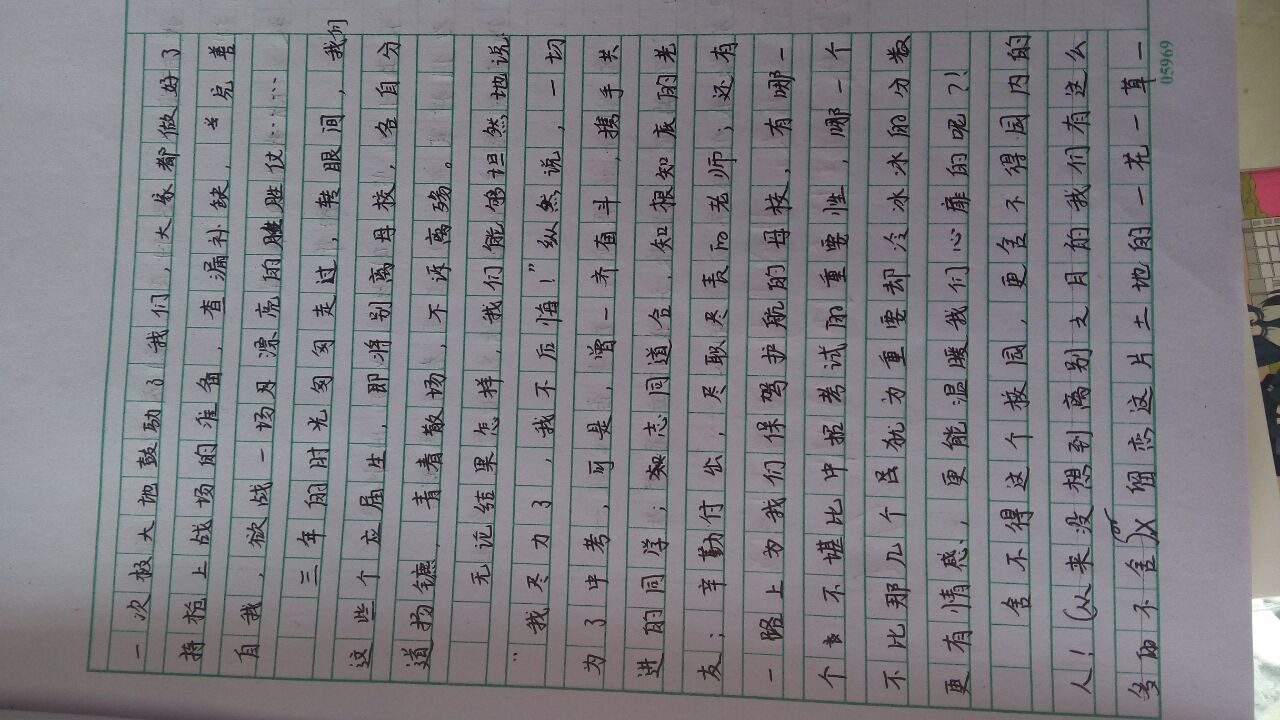 一次极大地鼓励了我们,大家都做好了
将抬上战场的准备,查漏补缺,完善
自我,欲战一场月漂亮的胜胜仗……
三年的时光匆匆走过,转眼间,我们
这些个应届生,即将别离母校,各自分
道扬镳,青春散场,不诉离殇。
无论结果怎样,我们能够坦然地说
“我尽力了,我不后悔!”纵然说,一切
为了中考,可是,曾一齐奋斗,携手共
进的同学;志同道合、知根知底的老
友;辛勤付出,尽职尽责的老师;还有
一路上为我们保驾护航的母校,有哪一
个不堪比中招考试的重要性,哪一个
不比那几个因为重要却冷冰冰的分数
更有情感、更能温暖我们心扉的呢?!
舍不得这个校园,更舍不得园内的
人!(从来没想到离别之月的我们有这么
多的不舍)留恋这片土地的一花一草一
05969